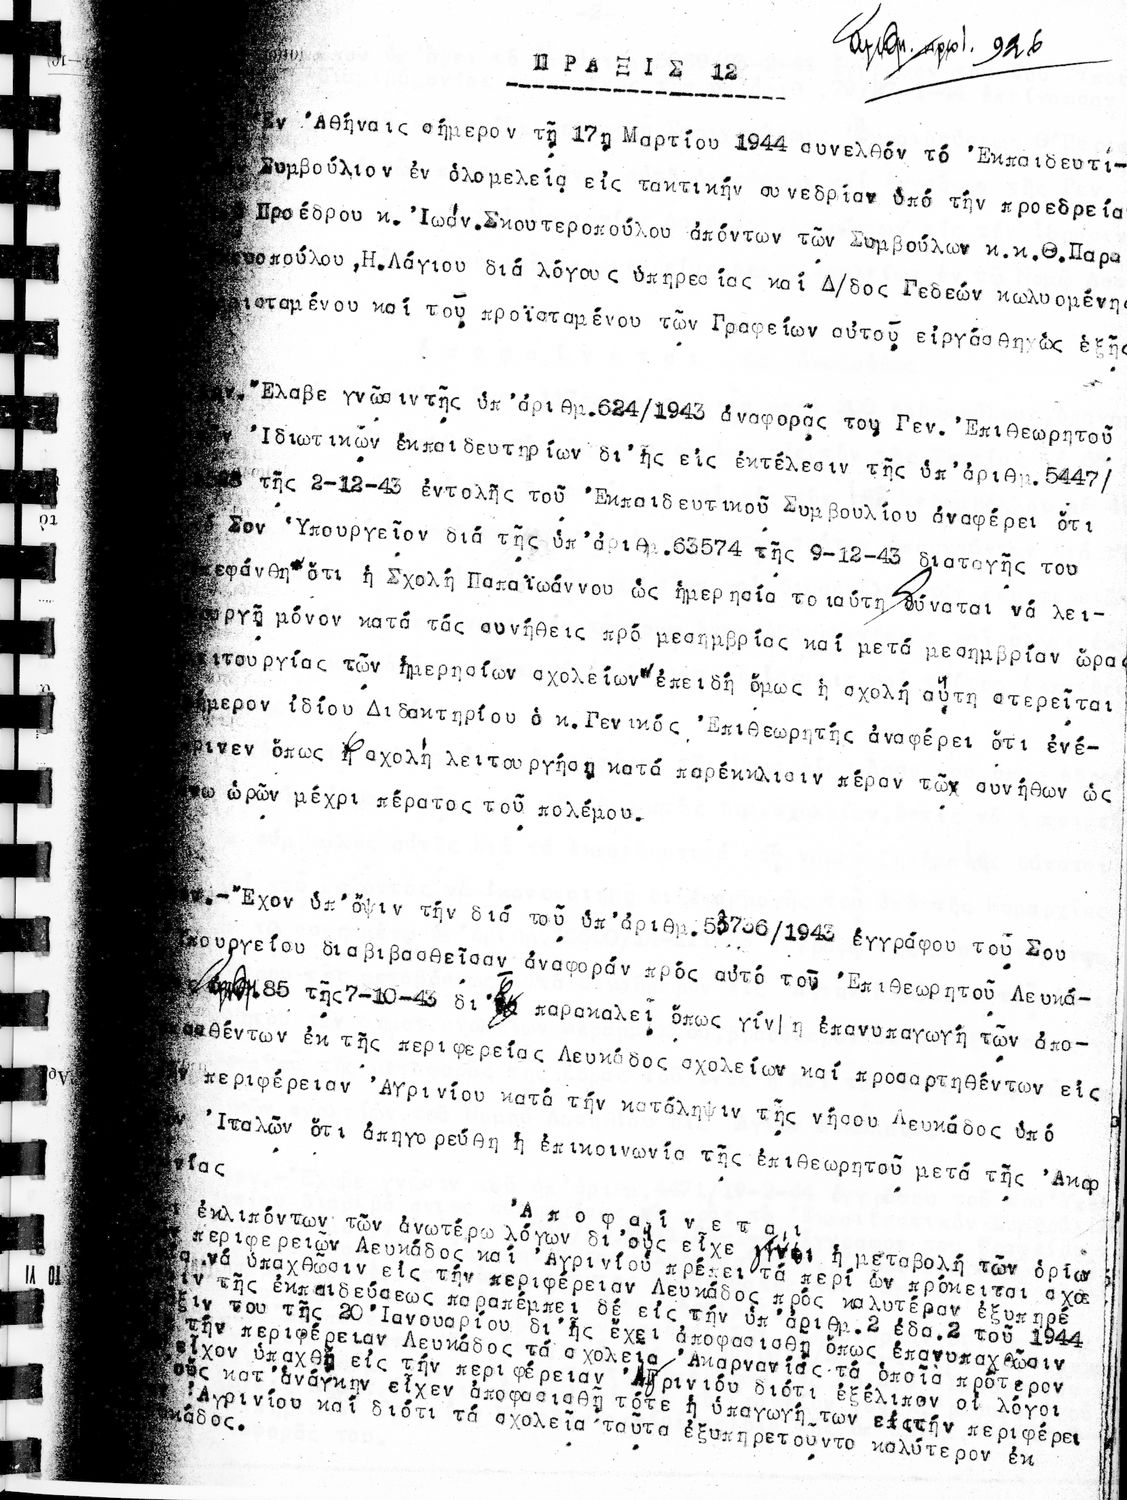 Αριθ. πρωτ. 926
ΠΡΑΞΙΣ 12
Ἐν Ἀθήναις σήμερον τῇ 17ῃ Μαρτίου 1944 συνελθόν τό Ἐκπαιδευτι-
Συμβούλιον ἐν ὁλομελείᾳ εἰς τακτικήν συνεδρίαν ὑπό τήν προεδρεία
Προέδρου κ. Ἰωάν.Σκουτεροπούλου ἀπόντων τῶν Συμβούλων κ.κ.Θ.Παρα
οπούλου,Η.Λάγιου διά λόγους ὑπηρεσίας καί Δ/δος Γεδεών κωλυομένης
ισταμένου καί τοῦ προϊσταμένου τῶν Γραφείων αὐτοῦ εἰργάσθη ὡς ἑξῆς
Ἔλαβε γνῶσιν τῆς ὑπ'ἀριθμ.624/1943 ἀναφορᾶς του Γεν. Ἐπιθεωρητοῦ
Ἰδιωτικῶν ἐκπαιδευτηρίων δι'ἧς εἰς ἐκτέλεσιν τῆς ὑπ'ἀριθμ. 5447/
τῆς 2-12-43 ἐντολῆς τοῦ Ἐκπαιδευτικοῦ Συμβουλίου ἀναφέρει ὅτι
Σον Ὑπουργεῖον διά τῆς ὑπ'ἀριθμ.63574 τῆς 9-12-43 διαταγῆς του
εφάνθη"ὅτι ἡ Σχολή Παπαϊωάννου ὡς ἡμερησία τοιαύτη δύναται νά λει-
ουργῇ μόνον κατά τάς συνήθεις πρό μεσημβρίας καί μετά μεσημβρίαν ὥρας
ιτουργίας τῶν ἡμερησίων σχολείων"ἐπειδή ὅμως ἡ σχολή αὕτη στερεῖται
ήμερον ἰδίου Διδακτηρίου ὁ κ.Γενικός Ἐπιθεωρητής ἀναφέρει ὅτι ἐνέ-
ρινεν ὅπως ἡ σχολή λειτουργήσῃ κατά παρέκκλισιν πέραν τῶν συνήθων ὡς
ω ὡρῶν μέχρι πέρατος τοῦ πολέμου.
.-Ἔχον ὑπ'ὄψιν τήν διά τοῦ ὑπ'ἀριθμ. /1943 ἐγγράφου τοῦ Σου
πουργείου διαβιβασθεῖσαν ἀναφοράν πρός αὐτό τοῦ Ἐπιθεωρητοῦ Λευκά-
ἀριθμ.85 τῆς 7-10-43 δι' παρακαλεῖ ὅπως γίνῃ ἡ ἐπανυπαγωγή τῶν ἀπο-
σθέντων ἐκ τῆς περιφερείας Λευκάδος σχολείων καί προσαρτηθέντων εἰς
ν περιφέρειαν Ἀγρινίου κατά τήν κατάληψιν τῆς νήσου Λευκάδος ὑπό
ν Ἰταλῶν ὅτι ἀπηγορεύθη ἡ ἐπικοινωνία τῆς ἐπιθεωρητοῦ μετά τῆς Ἀκαρ
νίας
Ἀποφαίνεται
ἐκλιπόντων τῶν ἀνωτέρω λόγων δι'οὕς εἶχε γίνει ἡ μεταβολή τῶν ὁρίων
περιφερειῶν Λευκάδος καί Ἀγρινίου πρέπει τά περί ὧν πρόκειται σχολ
νά ὑπαχθῶσιν εἰς τήν περιφέρειαν Λευκάδος πρός καλυτέραν ἐξυπηρέ
ιν τῆς ἐκπαιδεύσεως παραπέμπει δέ εἰς τήν ὑπ'ἀριθμ.2 ἐδα.2 τοῦ 1944
ξιν του τῆς 20 Ἰανουαρίου δι'ἧς ἔχει ἀποφασισθῆ ὅπως ἐπανυπαχθῶσιν
τήν περιφέρειαν Λευκάδος τά σχολεῖα Ἀκαρνανίας τά ὁποῖα πρότερον
εἶχον ὑπαχθῆ εἰς τήν περιφέρειαν Ἀγρινίου διότι ἐξέλιπον οἱ λόγοι
οὕς κατ'ἀνάγκην εἶχεν ἀποφασισθῆ τότε ἡ ὑπαγωγή των εἰς τήν περιφέρει
Ἀγρινίου καί διότι τά σχολεῖα ταῦτα ἐξυπηρετοῦντο καλύτερον ἐκ
κάδος.